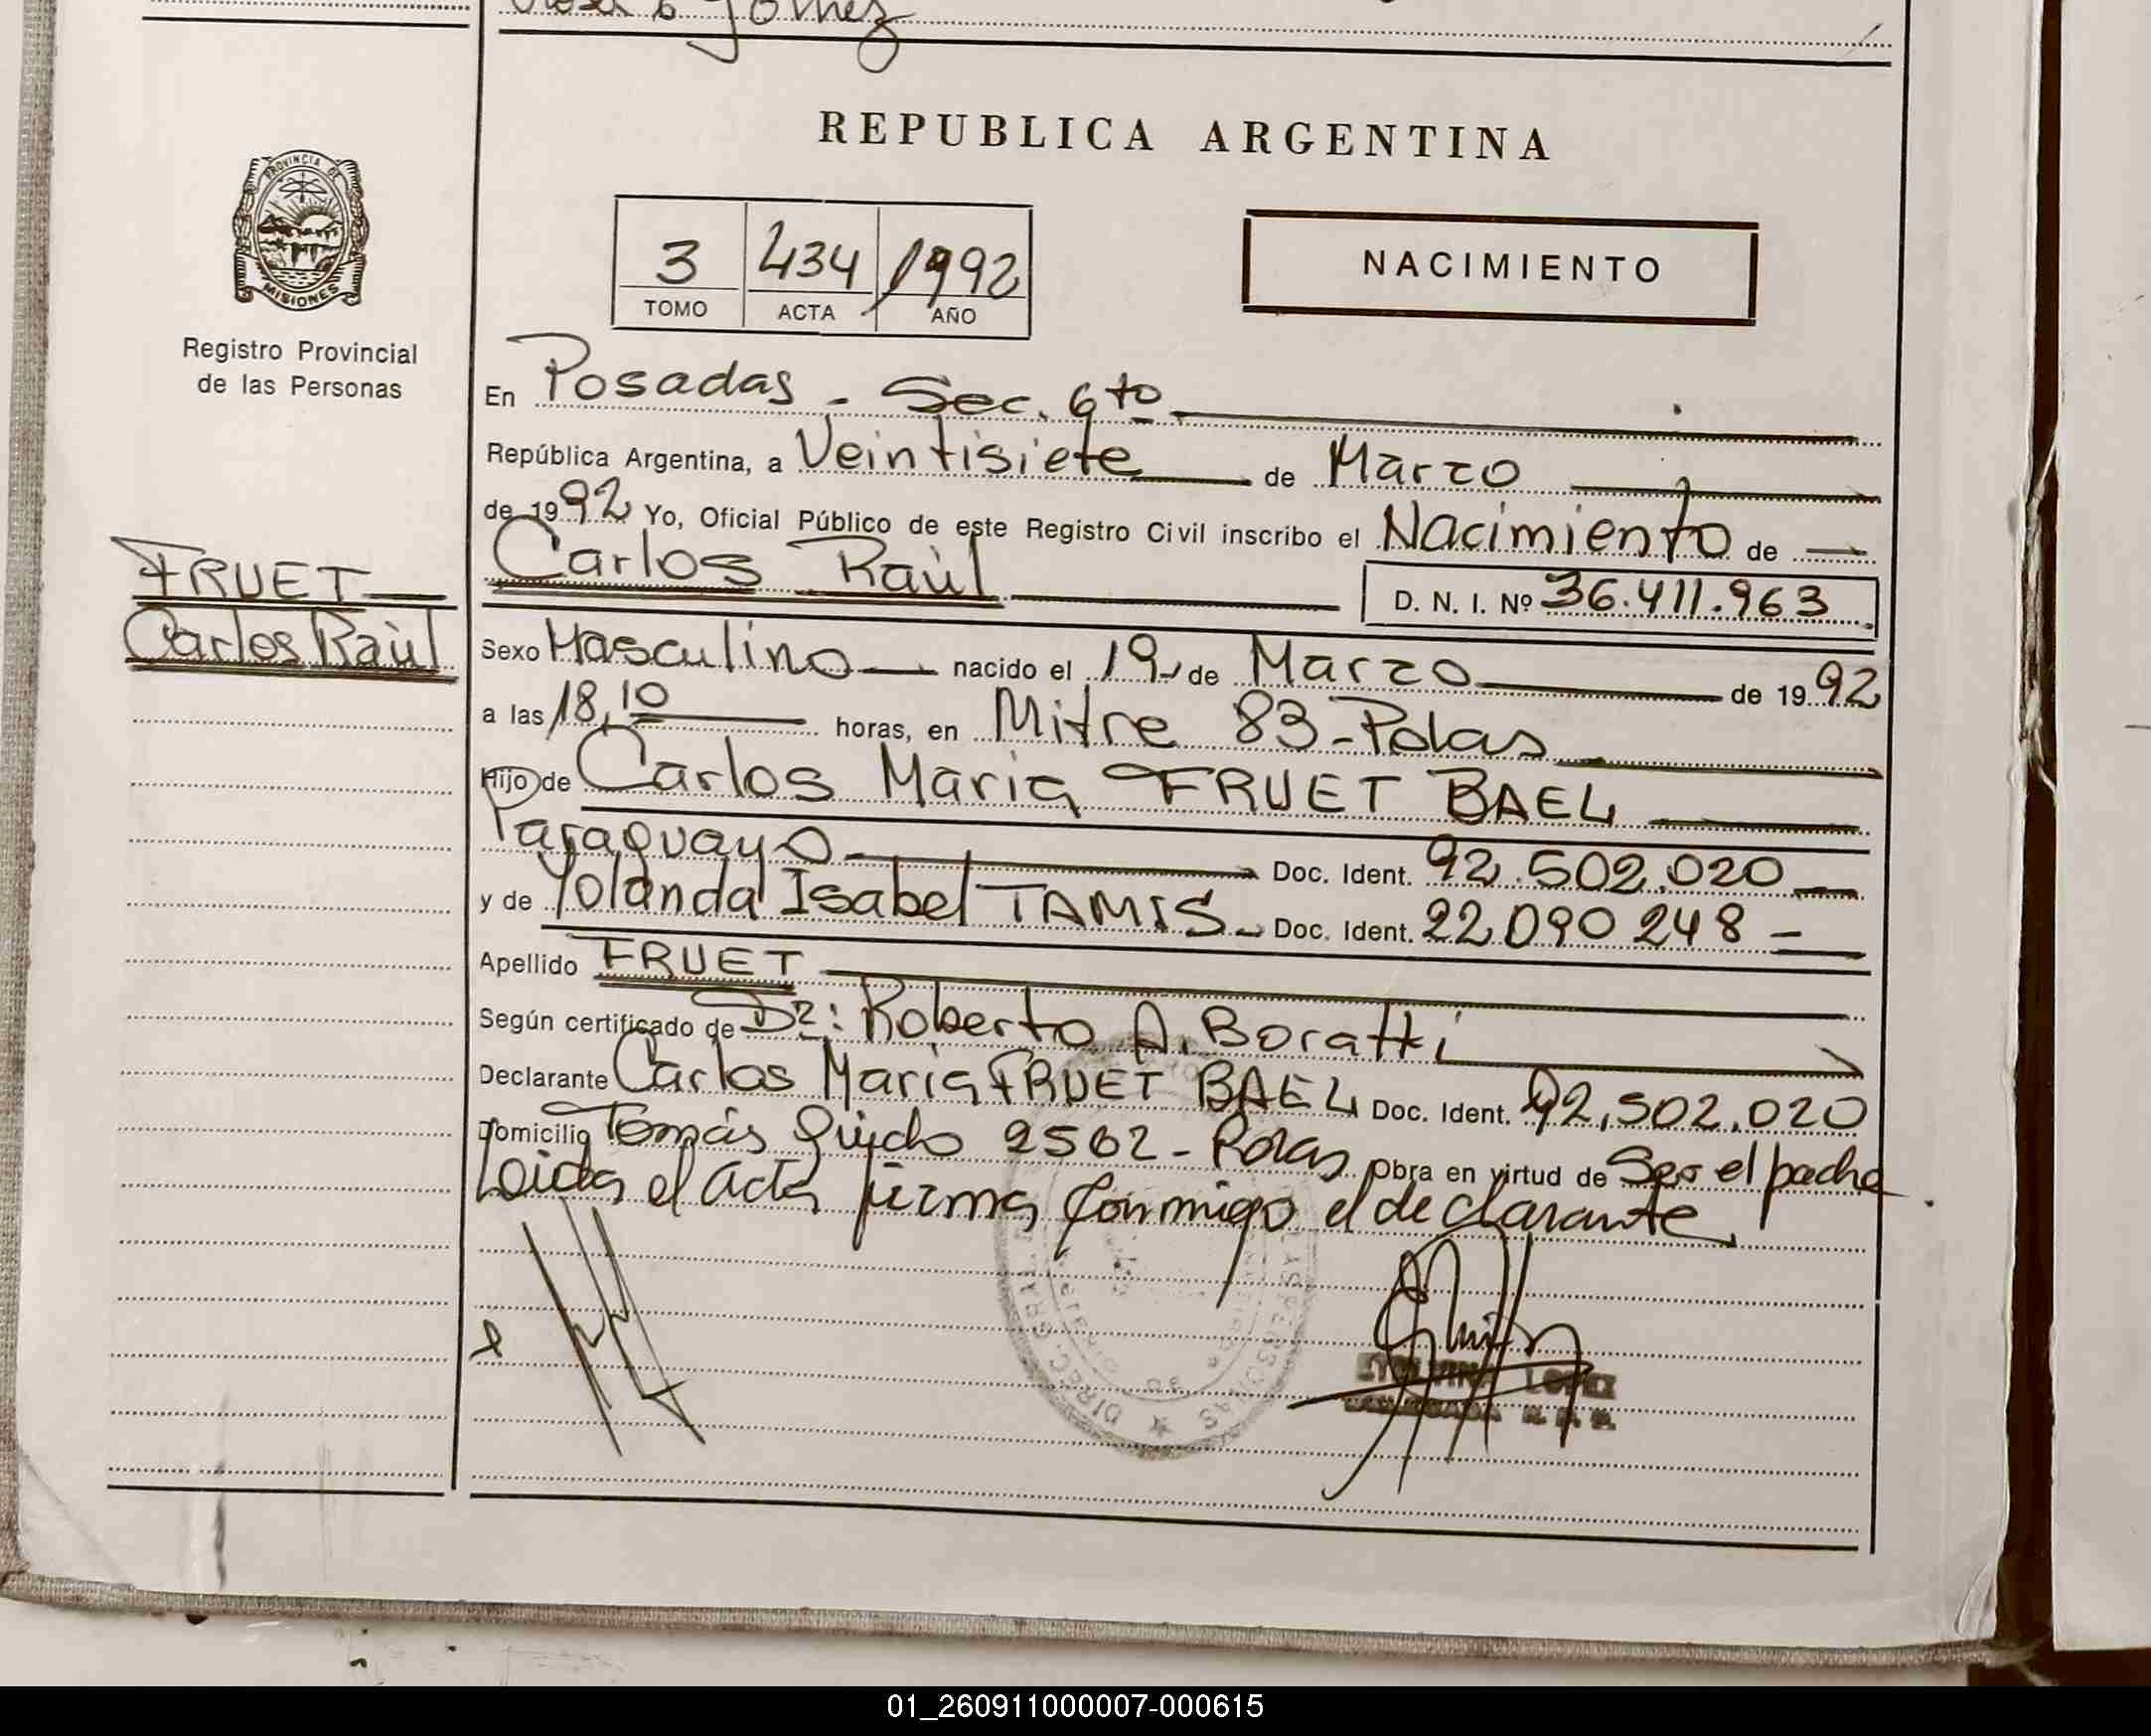 Gomez
REPUBLICA ARGENTINA
PROVINCIA DE
MISIONES
Registro Provincial
de las Personas
3 434 1992
TOMO ACTA AÑO
NACIMIENTO
En Posadas - Sec. 6to
República Argentina, a Veintisiete de Marzo
de 1992 Yo, Oficial Público de este Registro Civil inscribo el Nacimiento de
Carlos Raùl
D. N. I. Nº 36.411.963
FRUET
Carlos Raùl
Sexo Masculino nacido el 19 de Marzo de 1992
a las 18,10 horas, en Mitre 83-Pdas
Hijo de Carlos Maria FRUET BAEL
Paraguayo Doc. Ident. 92.502.020
y de Yolanda Isabel TAMIS Doc. Ident. 22.090 248
Apellido FRUET
Según certificado de Dr: Roberto A. Boratti
Declarante Carlos Maria FRUET BAEL Doc. Ident. 92.502.020
Domicilio Tomás Guido 2562 - Pdas Obra en virtud de Ser el padre
Leida el acta firma conmigo el declarante
DIREC. GRAL. PERSONAS
LOPEZ
01_260911000007-000615